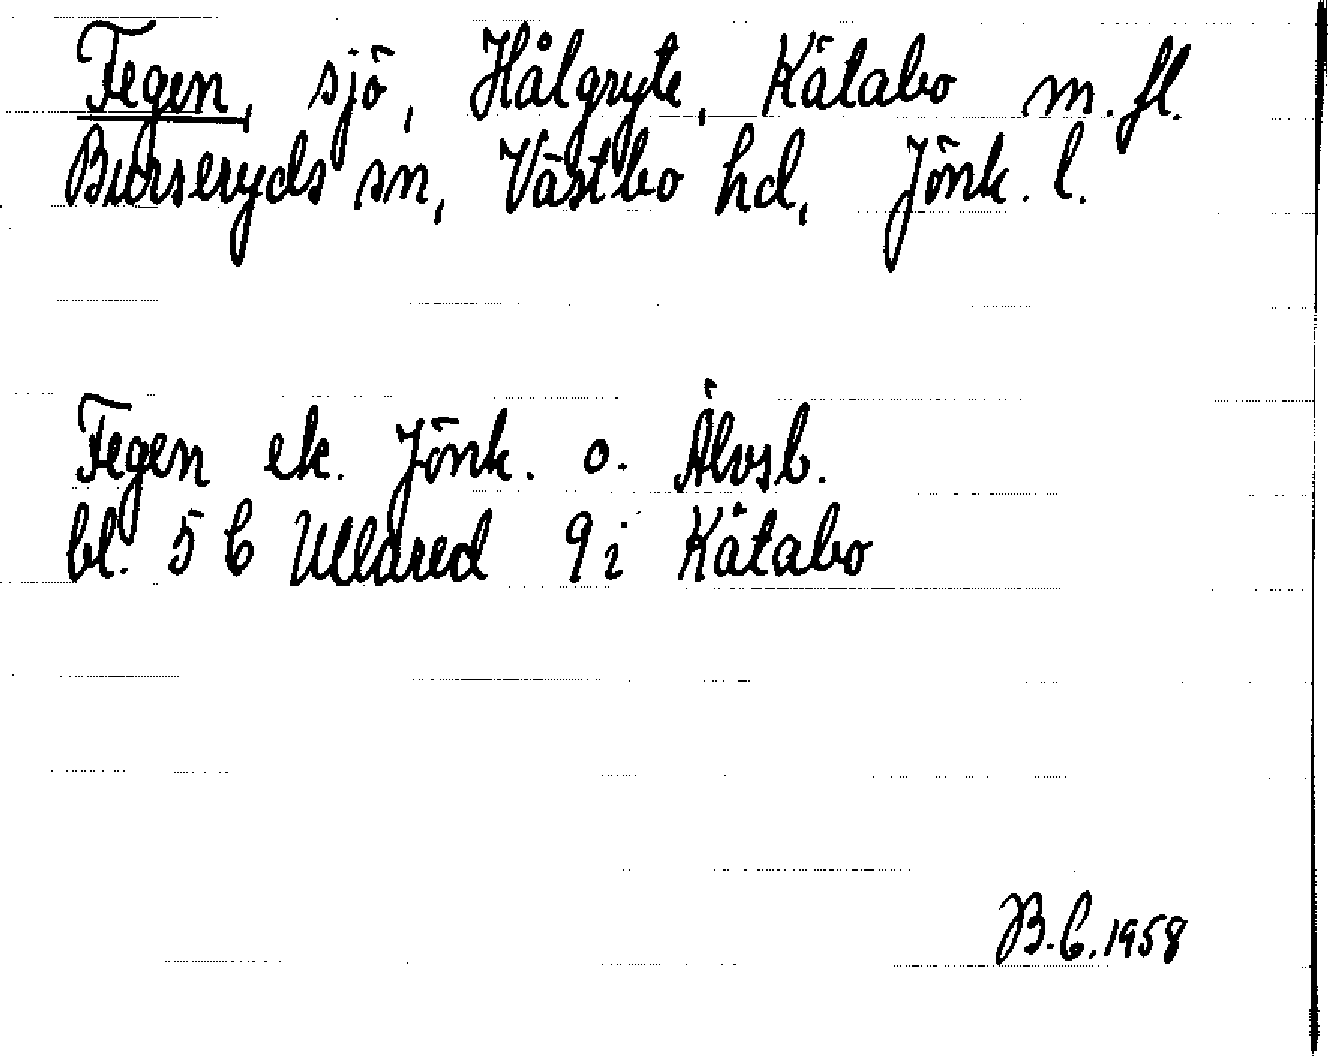 Fegen, sjö, Hålgryte, Kätabo m. fl.
Burseryds sn, Västbo hd, Jönk. l.
Fegen ek. Jönk. o. Älvsb.
bl. 5 C Ullared 9 i Kätabo
B.C. 1958